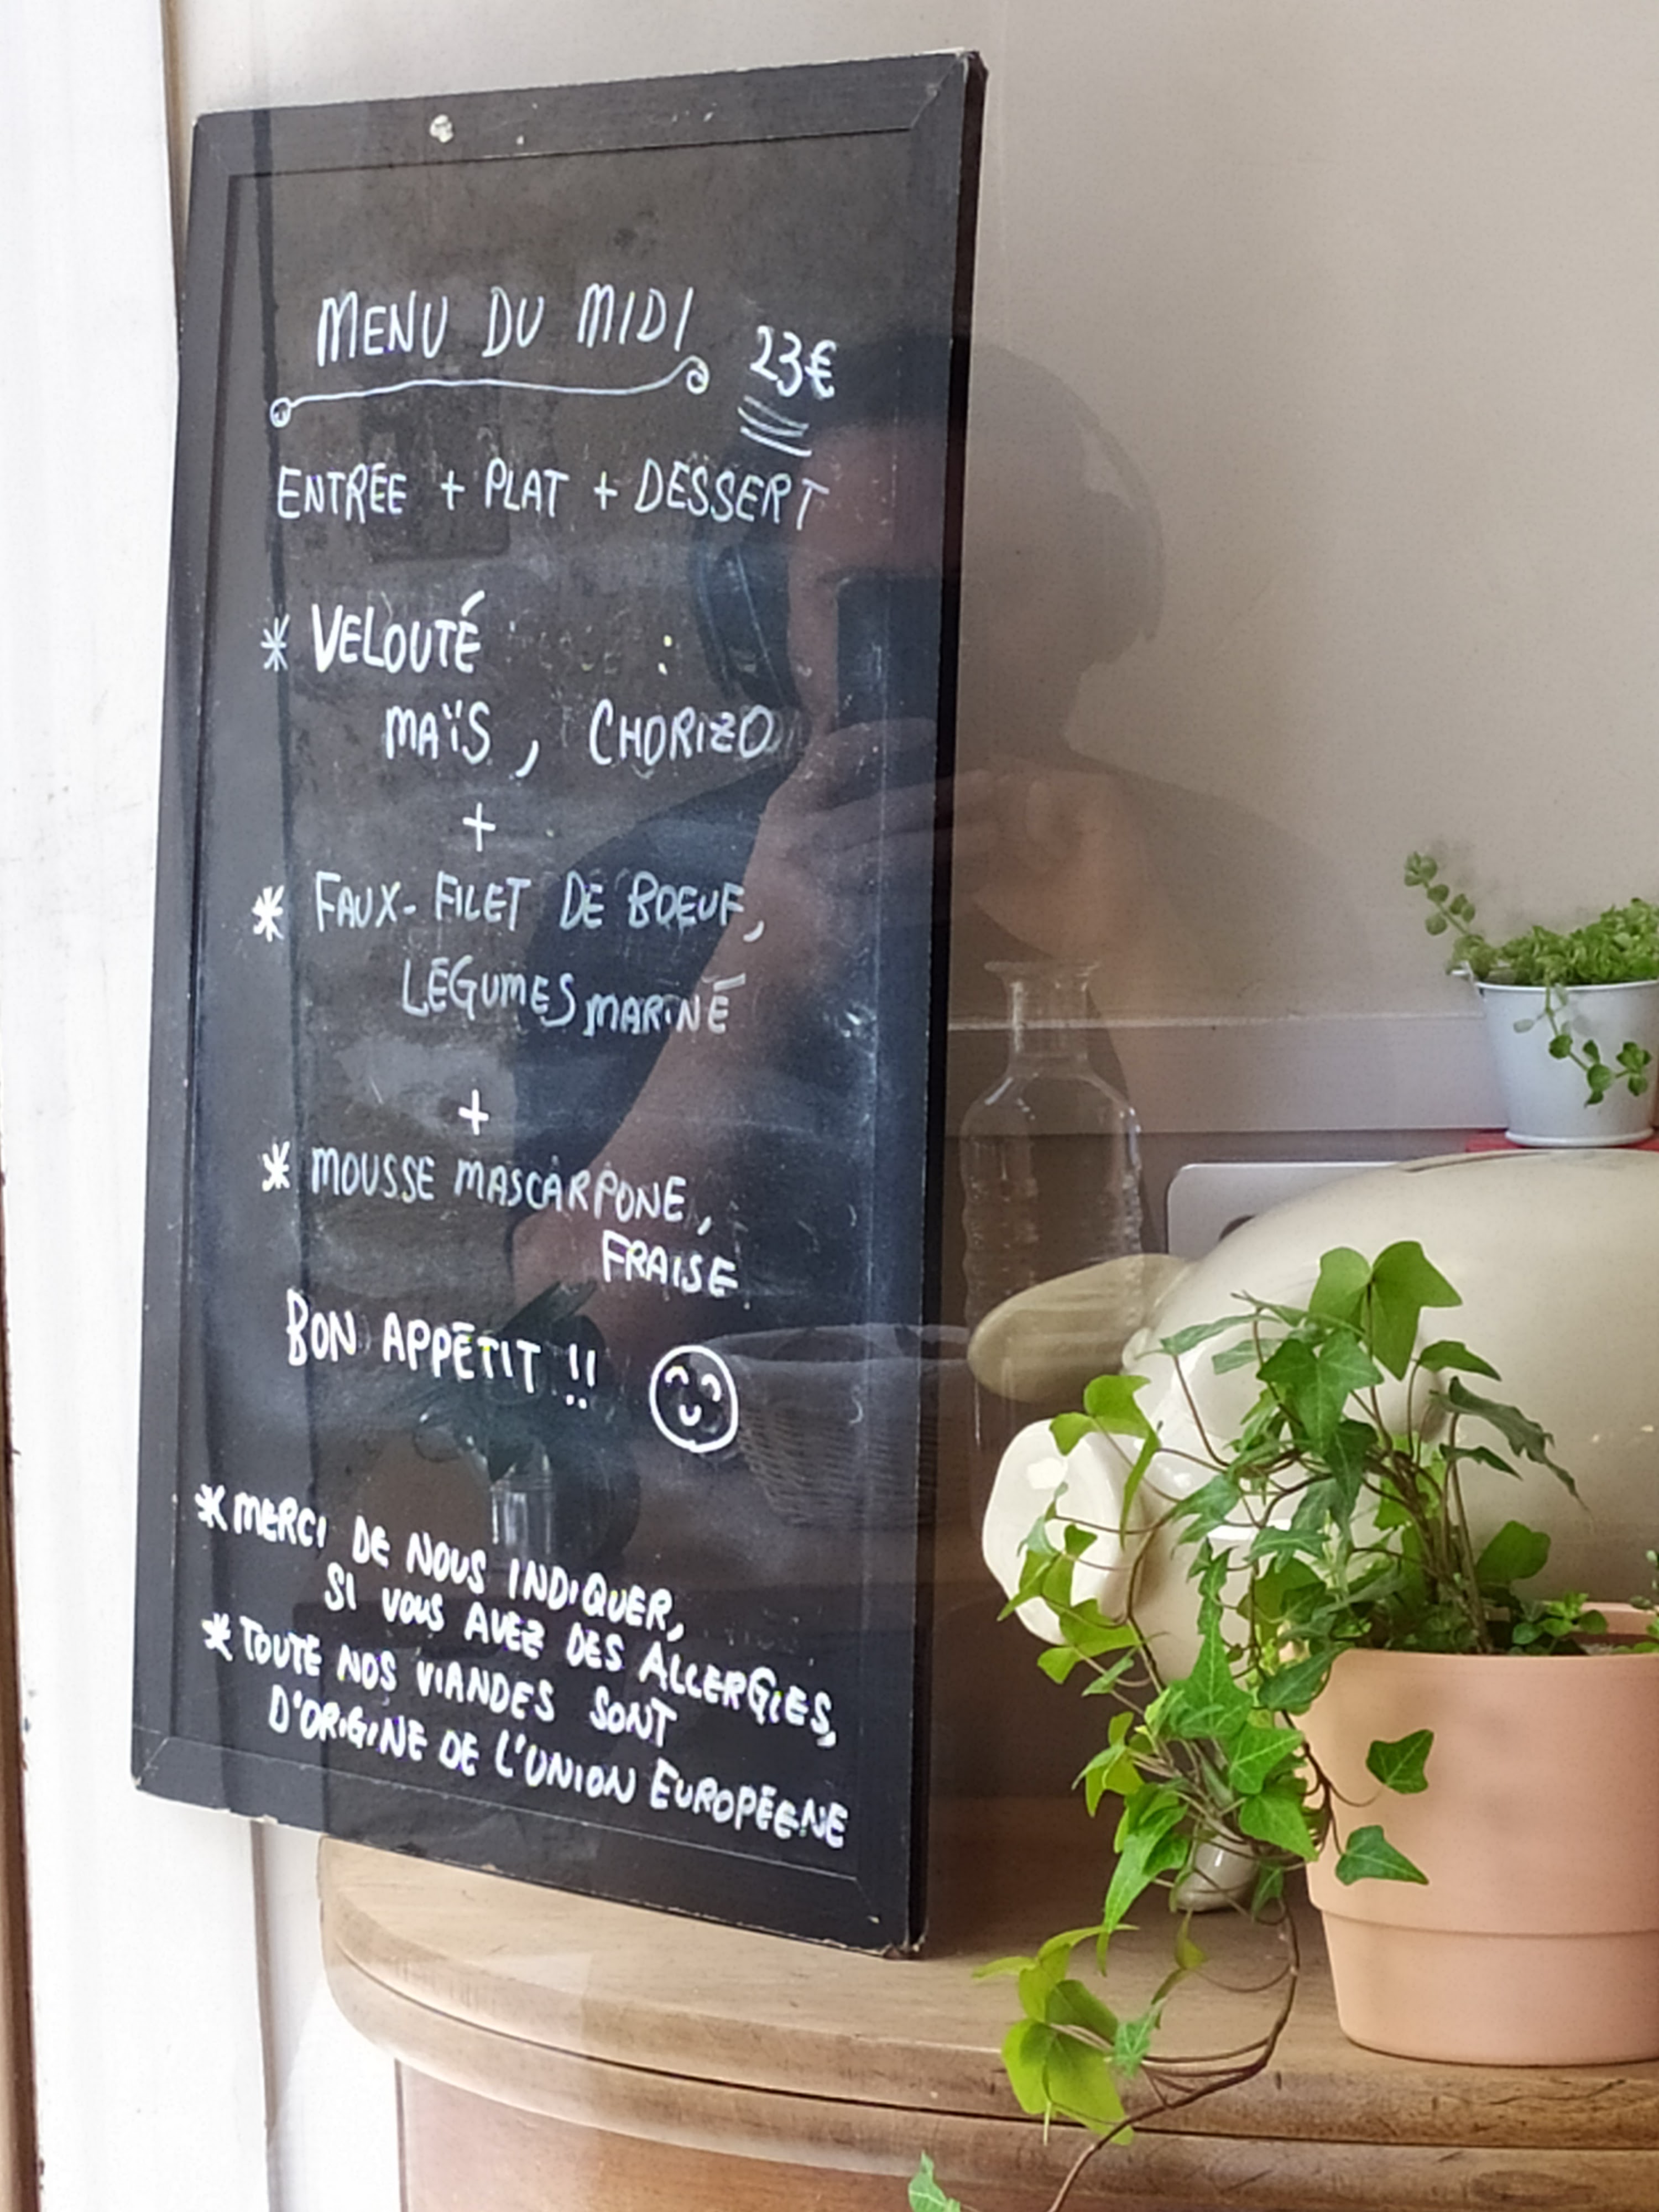 MENU DU MIDI 23€
ENTRÉE + PLAT + DESSERT
* VELOUTÉ :
MAÏS, CHORIZO
+
* FAUX-FILET DE BOEUF,
LÉGUMES MARINÉ
+
* MOUSSE MASCARPONE,
FRAISE
BON APPÉTIT !!
* MERCI DE NOUS INDIQUER,
SI VOUS AVEZ DES ALLERGIES,
* TOUTE NOS VIANDES SONT
D'ORIGINE DE L'UNION EUROPÉENE